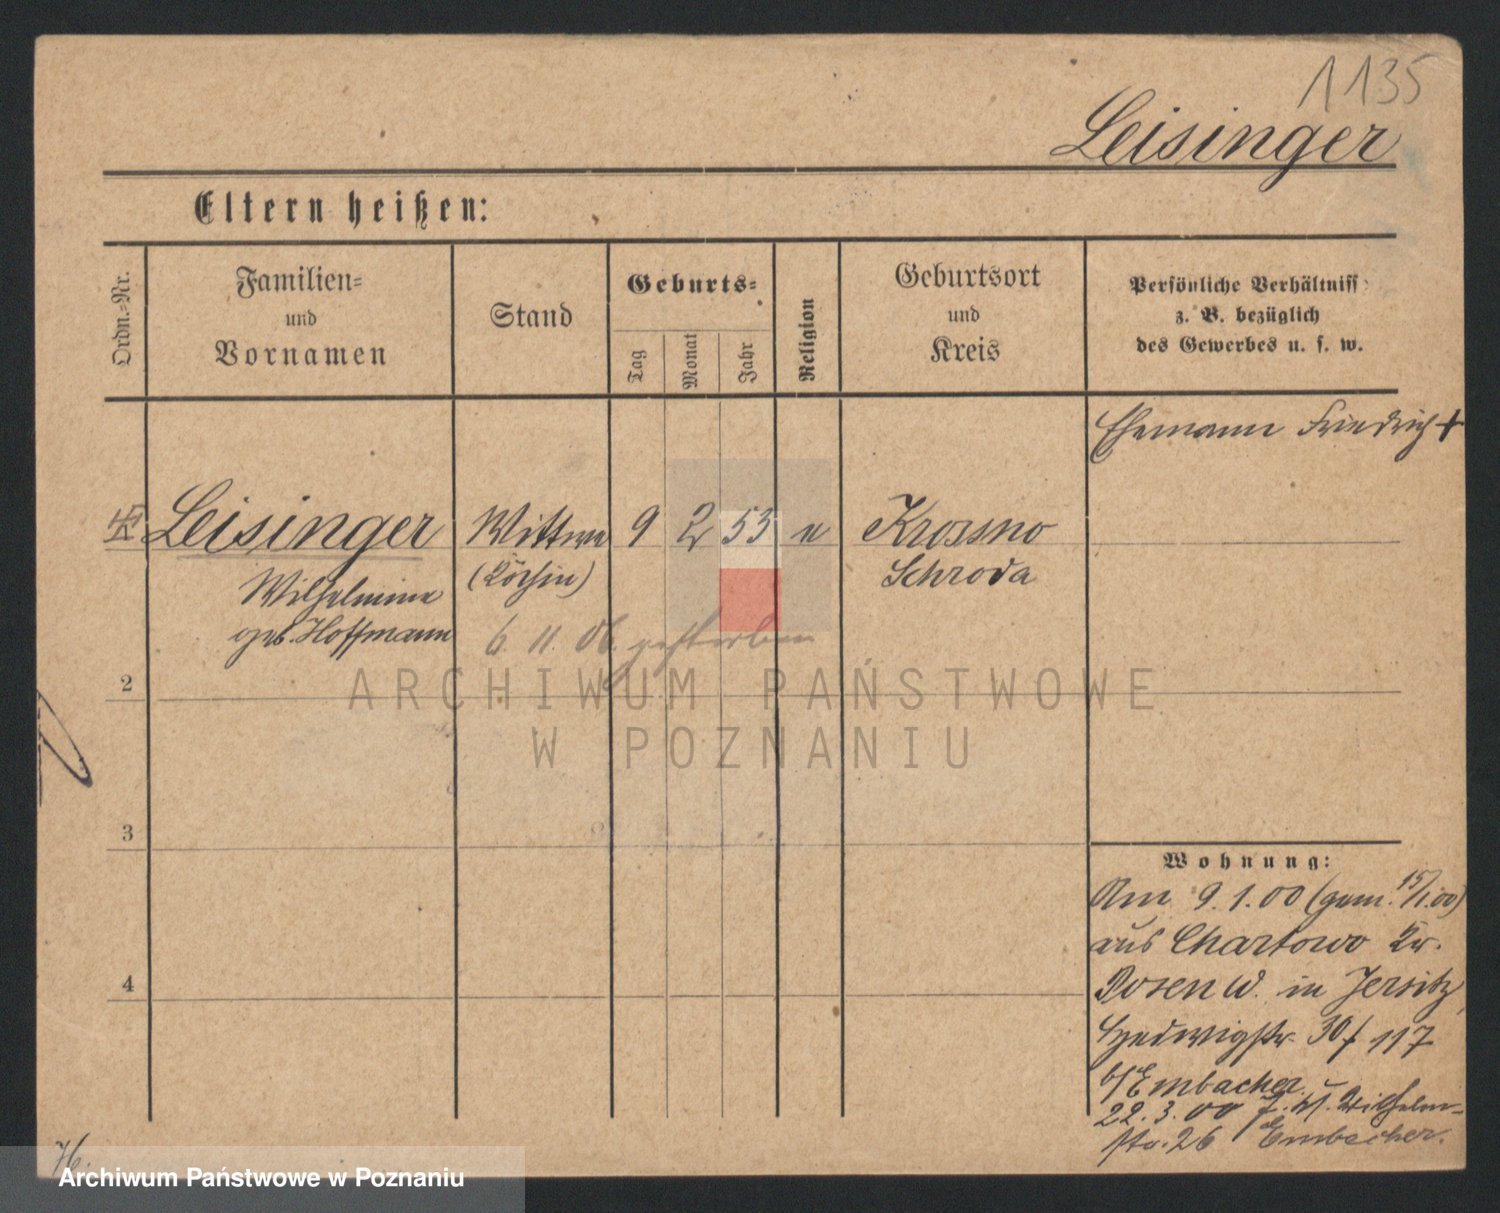 1135
Leisinger
Eltern heißen:
Ordn.-Nr.
Familien-
und
Vornamen
Stand
Geburts-
Tag
Monat
Jahr
Religion
Geburtsort
und
Kreis
Persönliche Verhältniss
z. B. bezüglich
des Gewerbes u. s. w.
Ehemann Friedrich +
Leisinger Wittwe 9 2 53 e Krossno
Wilhelmine (Köchin) Schroda
geb. Hoffmann 6. 11. 06. gestorben
2
ARCHIWUM PAŃSTWOWE
W POZNANIU
3
4
Wohnung:
Am 9.1.00 (gem. 15/1.00)
aus Chartowo Kr.
Posen W. in Jersitz,
Hedwigstr 30/117
b/ Embacher.
22.3.00 Wilhelm-
str. 26 Embacher.
Archiwum Państwowe w Poznaniu